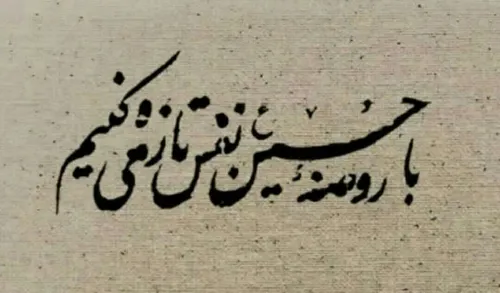 با روضهٔ حسین نفس تازه می کنیم